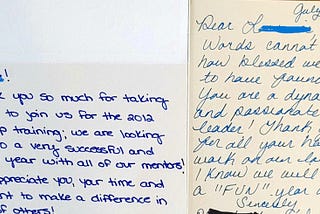 !
k you so much for taking
to join us for the 2012
p training; we are looking
o a very successful and
year with all of our mentors!
preciate you, your time and
nt to make a difference in
f others!
July
Dear L
Words cannot
how blessed we
to have foun
You are a dyna
and passionate
leader! Thank
for all your ha
work on our
I know we will
a "FUN" year